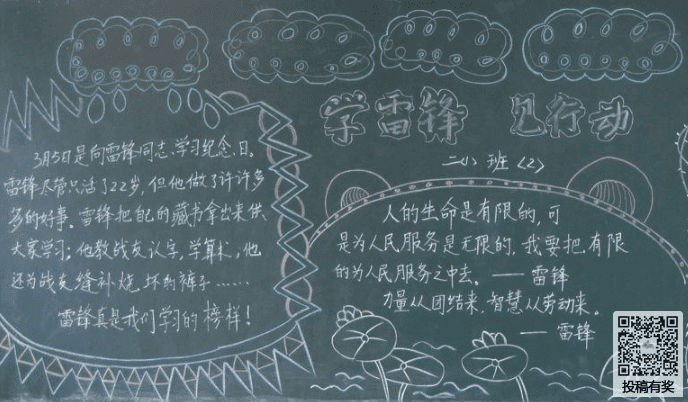 学雷锋 见行动
二〈1〉班〈2〉
3月5日是向雷锋同志学习纪念日。
雷锋尽管只活了22岁,但他做了许许多
多的好事。雷锋把自己的藏书拿出来供
大家学习;他教战友认字,学算术,他
还为战友缝补烧坏的裤子……
雷锋真是我们学习的榜样!
人的生命是有限的,可
是为人民服务是无限的,我要把有限
的为人民服务之中去。——雷锋
力量从团结来,智慧从劳动来。
——雷锋
投稿有奖